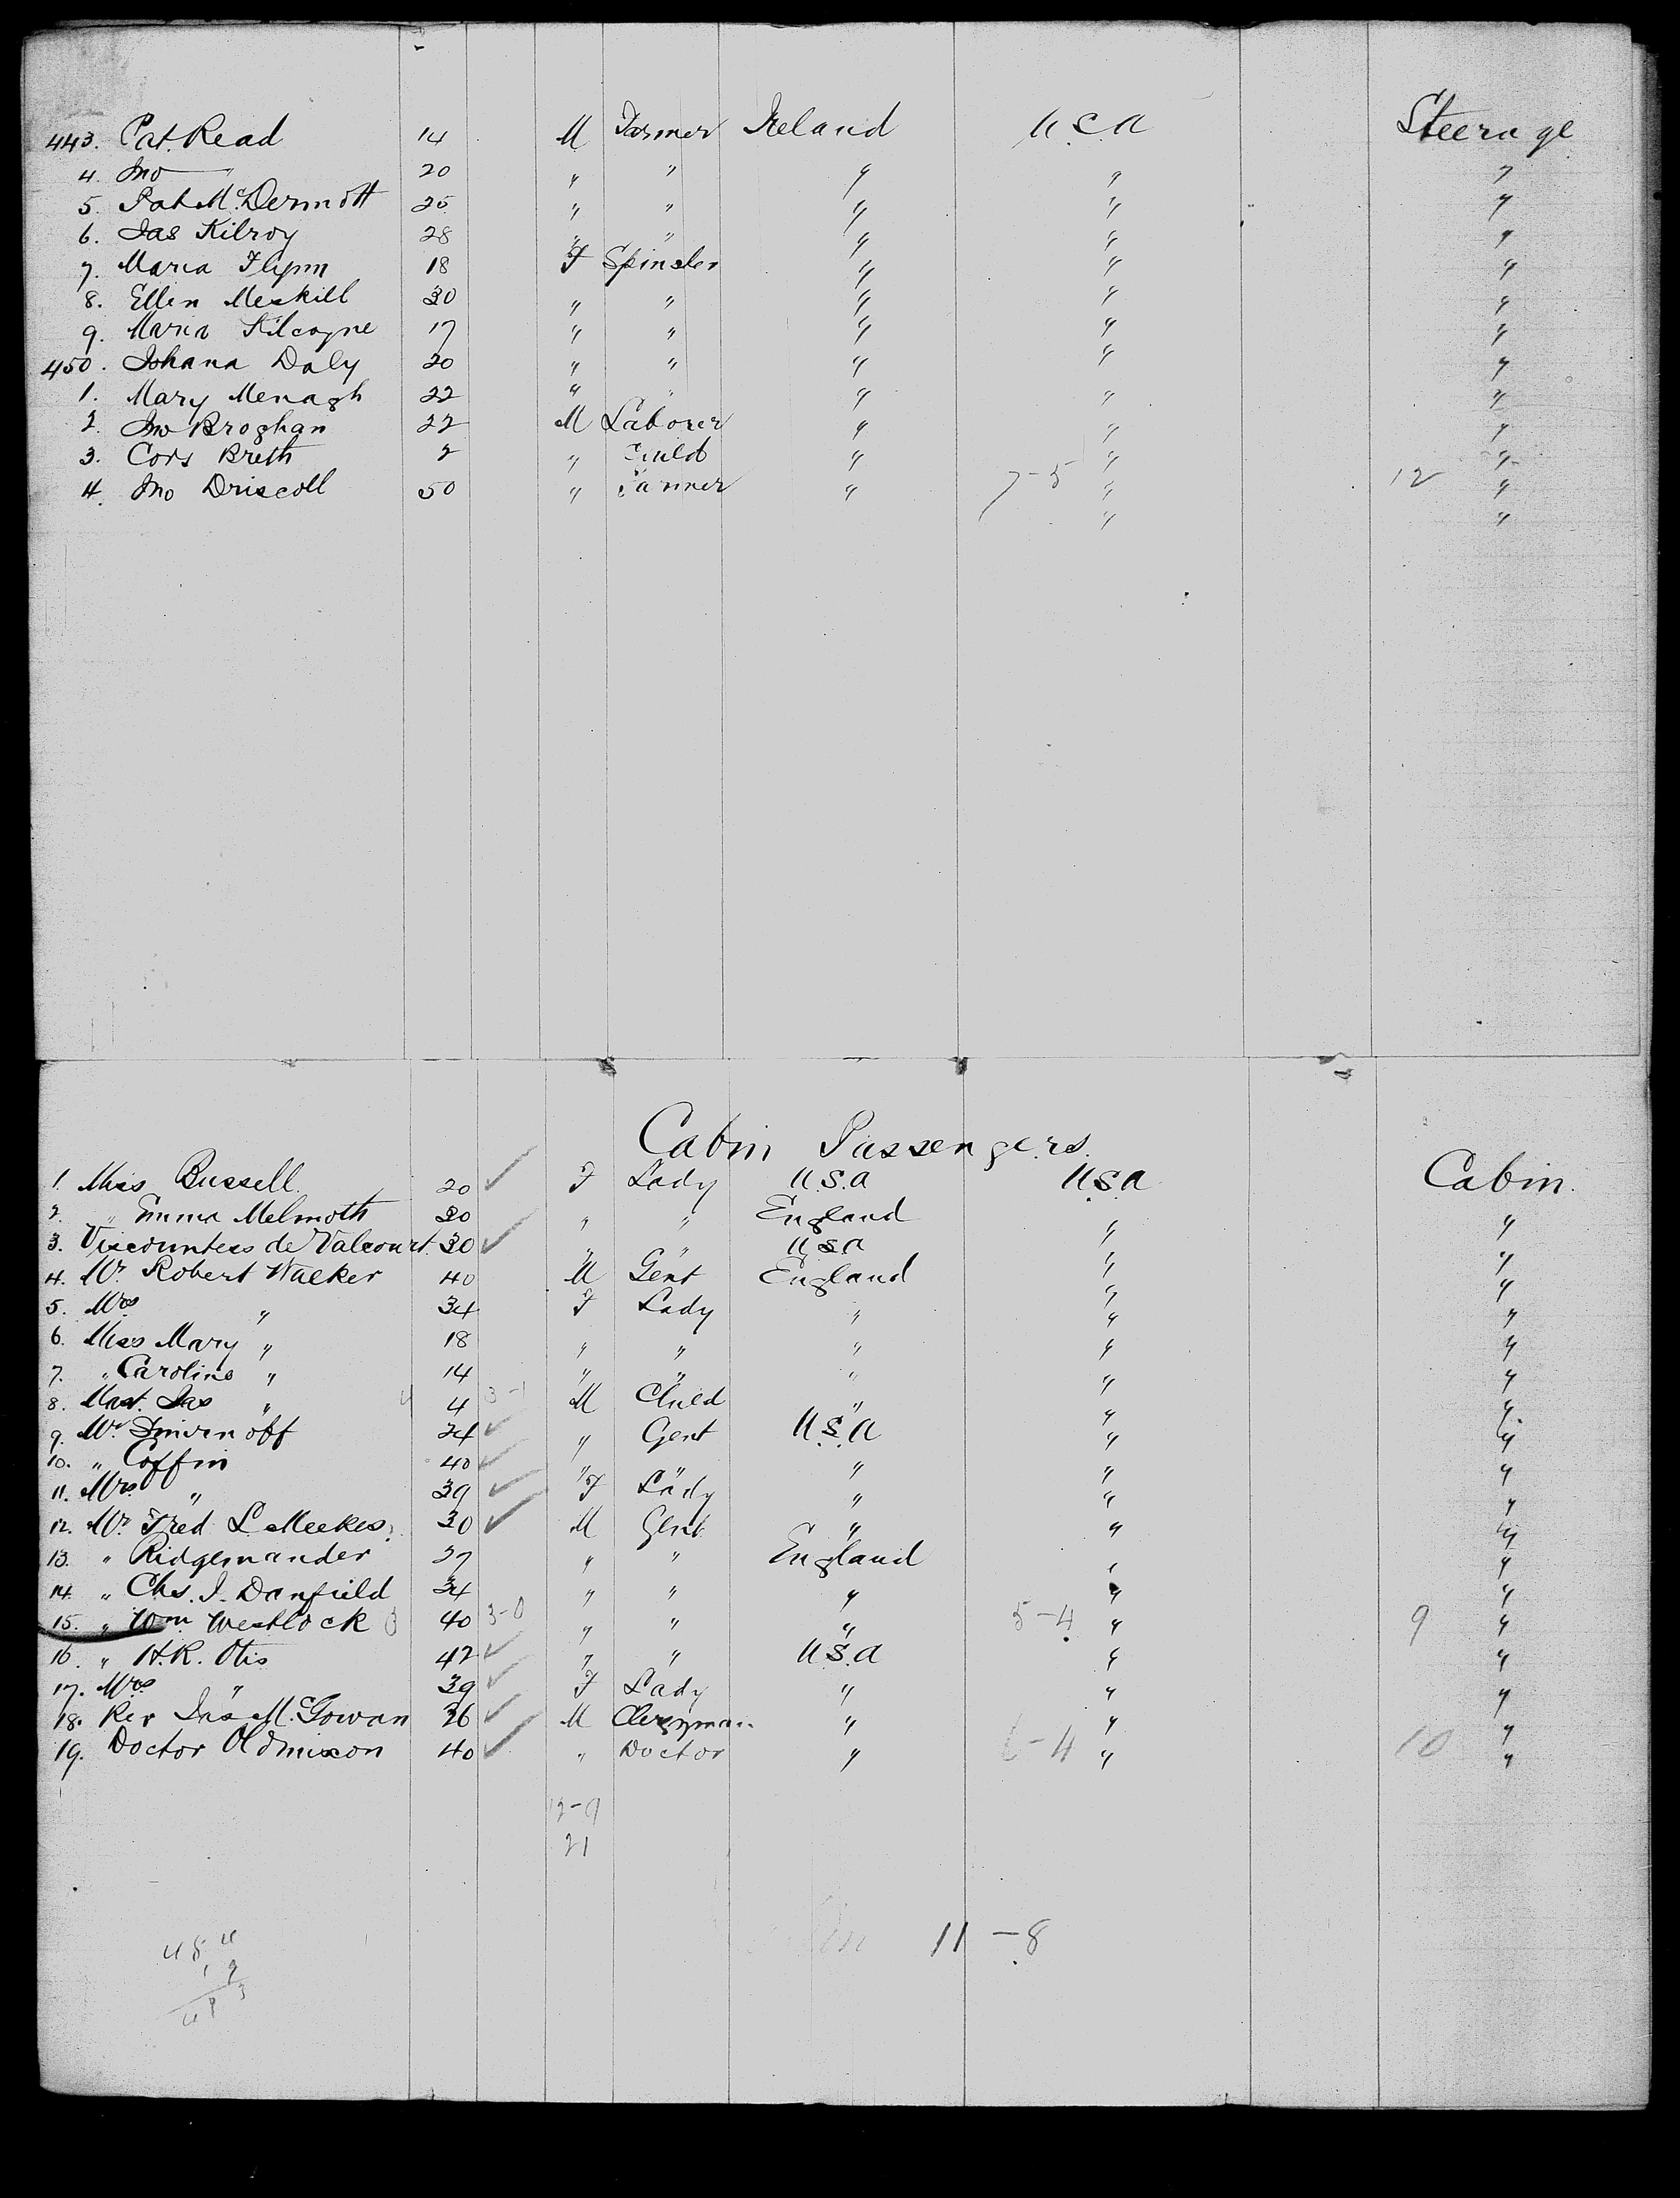 443. Pat. Read 14 M Farmer Ireland U.S.A Steerage
4. Jno " 20 " " " " "
5. Pat McDermott 25 " " " " "
6. Jas Kilroy 28 " " " " "
7. Maria Flynn 18 F Spinster " " "
8. Ellen Meskill 30 " " " " "
9. Maria Kilcoyne 17 " " " " "
450. Johana Daly 20 " " " " "
1. Mary Menagh 22 " " " " "
2. Jno Broghan 22 M Laborer " " "
3. Cors Breth 2 " Child " " "
4. Jno Driscoll 50 " Farmer " 7-5 " 12 "
" "
Cabin Passengers.
1. Miss Bussell 20 ✓ F Lady U.S.A U.S.A Cabin.
2. " Emma Melmoth 30 " " England " "
3. Viscountess de Valcourt 30 ✓ " " U.S.A " "
4. Mr Robert Walker 40 M Gent England " "
5. Mrs " 34 F Lady " " "
6. Miss Mary " 18 " " " " "
7. " Caroline " 14 " " " " "
8. Mast. Jas " 4 4 3-1 M Child " " "
9. Mr. Smirnoff 24 ✓ " Gent U.S.A " "
10. " Coffin 40 ✓ " " " " "
11. Mrs " 39 ✓ F Lady " " "
12. Mr Fred L Meekes 30 ✓ M Gent " " "
13. " Ridgemander 27 " " England " "
14. " Chs. J. Danfield 34 " " " " "
15. " Wm Westlock 3 40 3-0 " " " 5-4 " 9 "
16. " H.R. Otis 42 ✓ " " U.S.A " "
17. Mrs " 39 ✓ F Lady " " "
18. Rev Jas McGowan 36 ✓ M Clergyman " " "
19. Doctor Oldmixon 40 ✓ " Doctor " 6-4 " 10 "
12-9
21
11-8